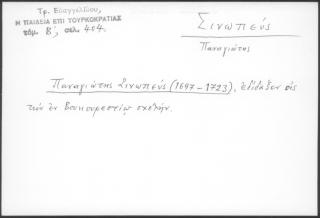 Τρ. Εὐαγγελίδου,
Η ΠΑΙΔΕΙΑ ΕΠΙ ΤΟΥΡΚΟΚΡΑΤΙΑΣ
τόμ. Β', σελ. 404.
Σινωπεύς
Παναγιώτης
Παναγιώτης Σινωπεύς (1697-1723), ἐδίδαξεν εἰς
τὴν ἐν Βουκουρεστίῳ σχολήν.